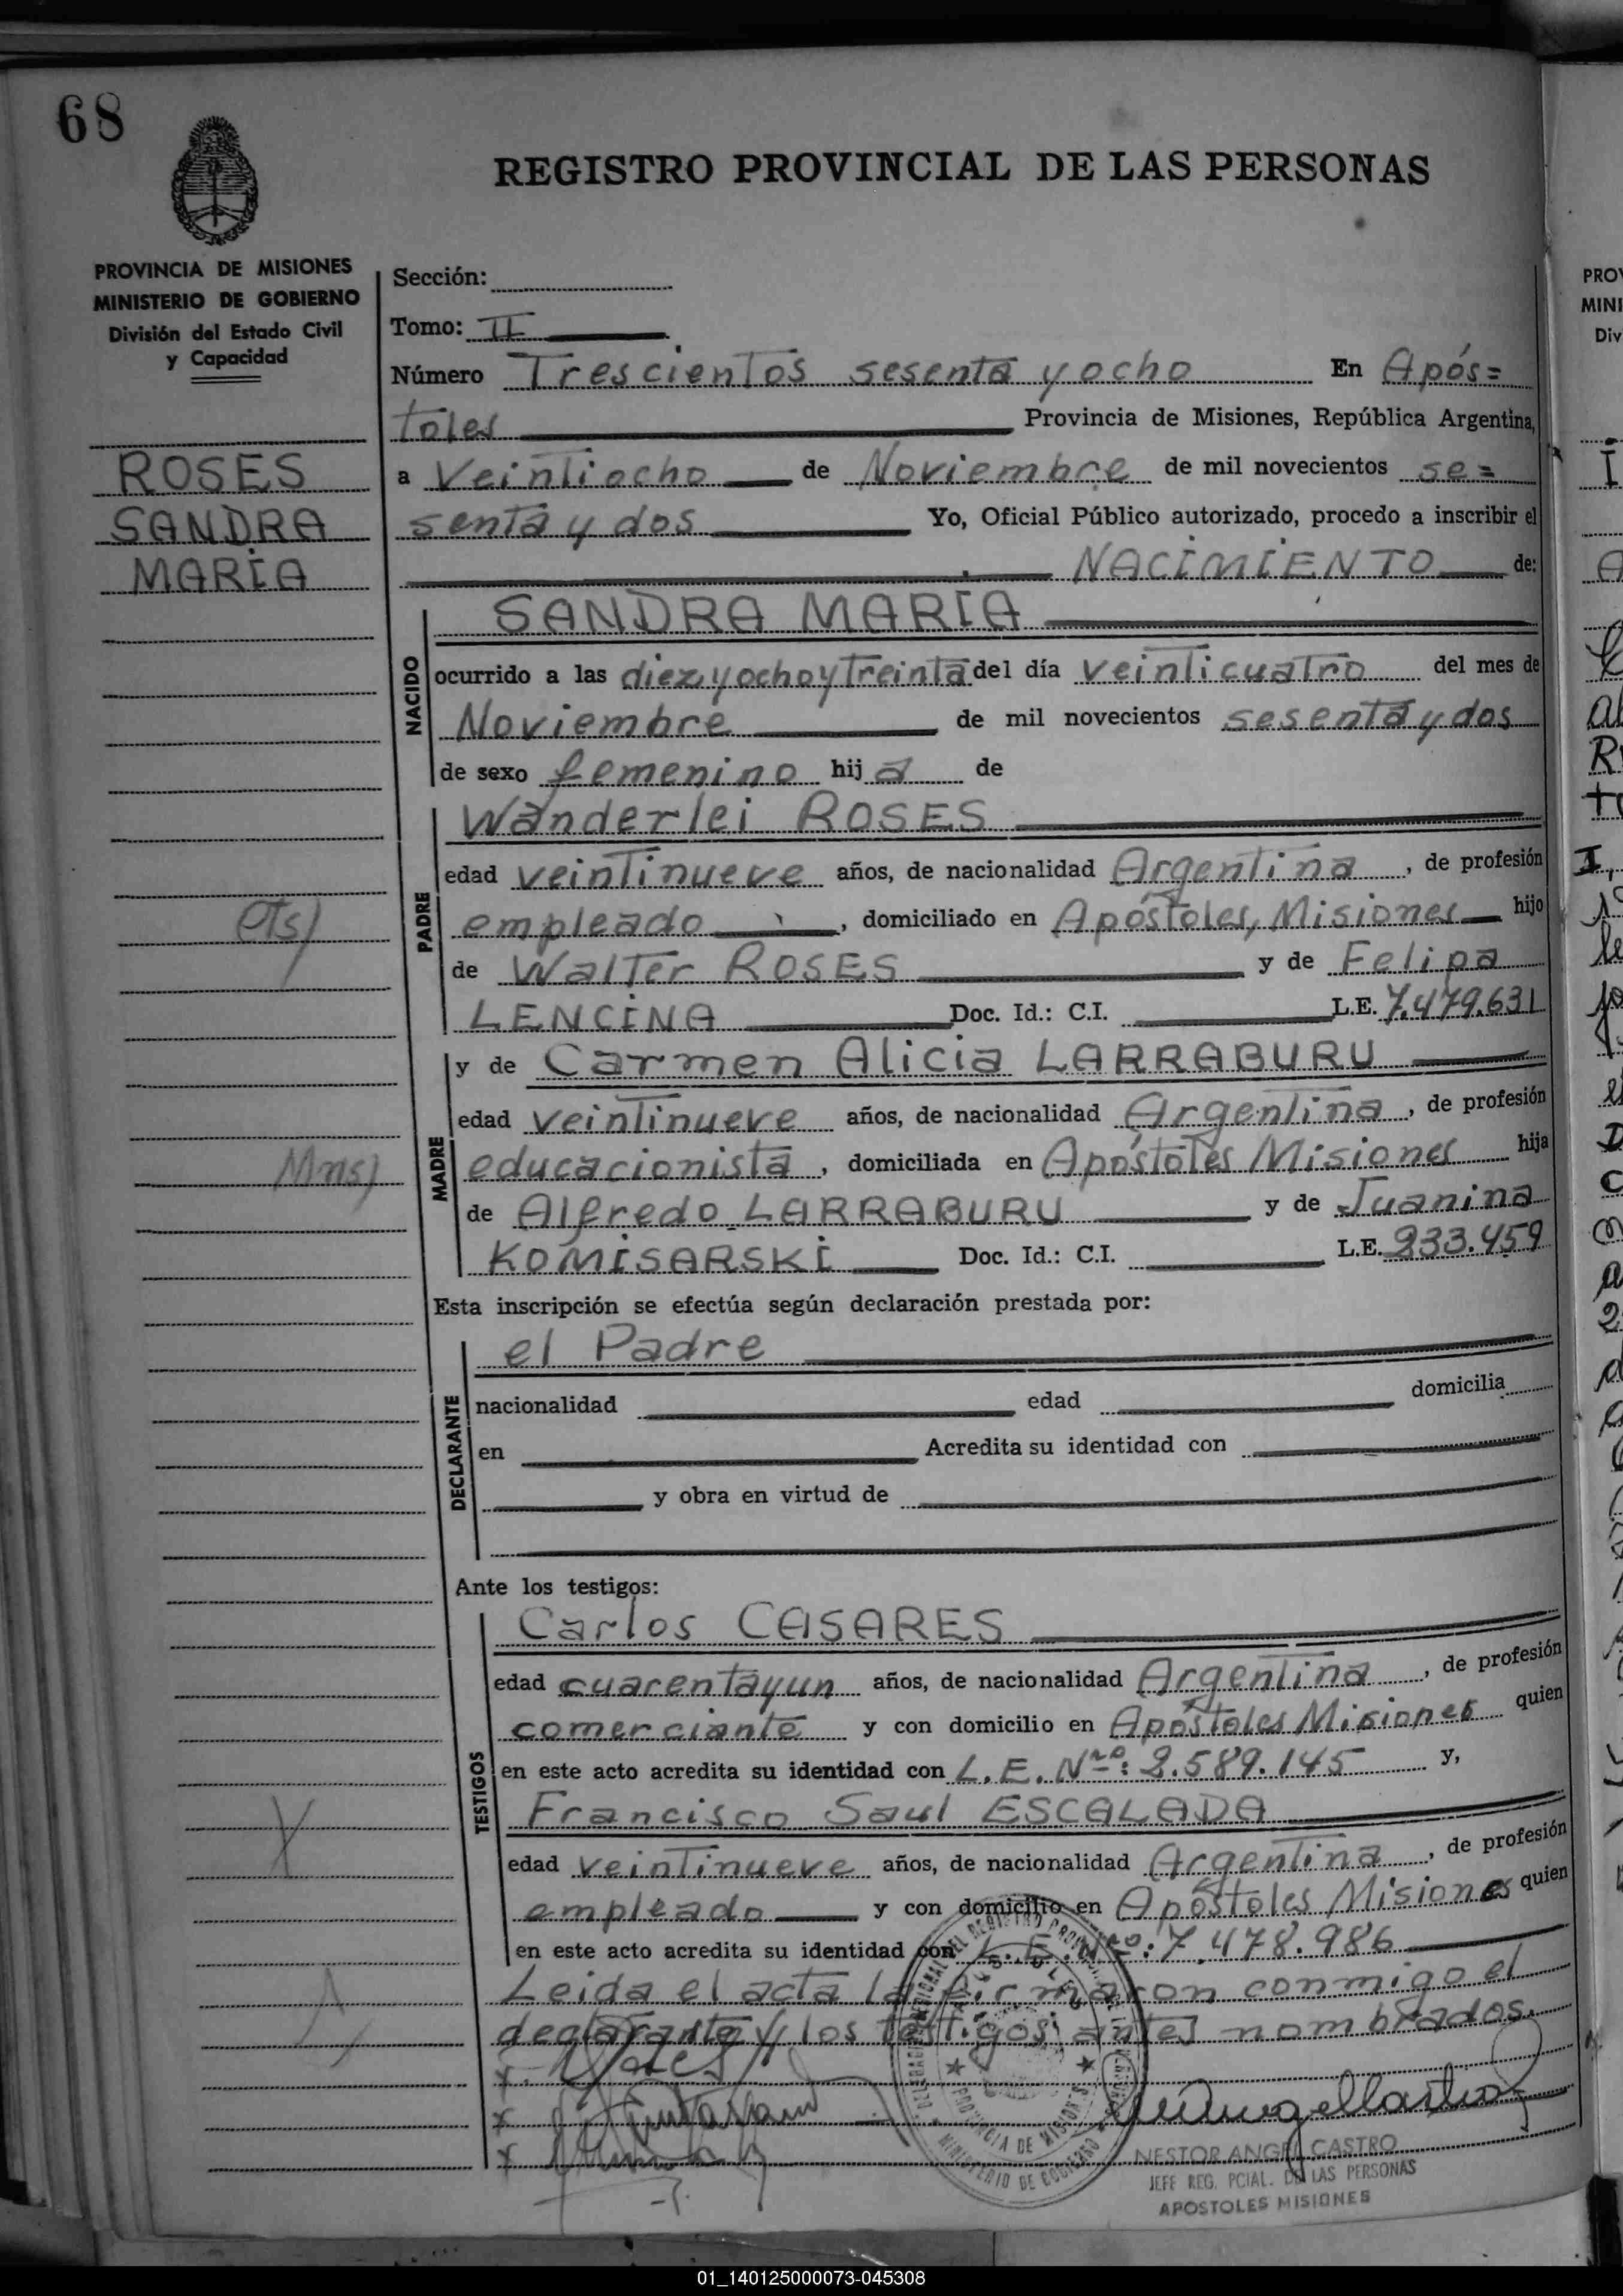 68
REGISTRO PROVINCIAL DE LAS PERSONAS
PROVINCIA DE MISIONES
MINISTERIO DE GOBIERNO
División del Estado Civil
y Capacidad
ROSES
SANDRA
MARIA
Ots)
Mns)
Sección:
Tomo: II
Número Trescientos sesenta y ocho En Após=
toles Provincia de Misiones, República Argentina,
a Veintiocho de Noviembre de mil novecientos se=
senta y dos Yo, Oficial Público autorizado, procedo a inscribir el
NACIMIENTO de:
NACIDO
SANDRA MARIA
ocurrido a las diez y ocho y treinta del día veinticuatro del mes de
Noviembre de mil novecientos sesenta y dos
de sexo femenino hij a de
PADRE
Wanderlei ROSES
edad veintinueve años, de nacionalidad Argentina, de profesión
empleado, domiciliado en Apóstoles, Misiones hijo
de Walter ROSES y de Felipa
LENCINA Doc. Id.: C.I. L.E. 7.479.631
MADRE
y de Carmen Alicia LARRABURU
edad veintinueve años, de nacionalidad Argentina, de profesión
educacionista, domiciliada en Apóstoles Misiones hija
de Alfredo LARRABURU y de Juanina
KOMISARSKI Doc. Id.: C.I. L.E. 233.459
Esta inscripción se efectúa según declaración prestada por:
DECLARANTE
el Padre
nacionalidad edad domicilia
en Acredita su identidad con
y obra en virtud de
Ante los testigos:
TESTIGOS
Carlos CASARES
edad cuarentayun años, de nacionalidad Argentina, de profesión
comerciante y con domicilio en Apóstoles Misiones quien
en este acto acredita su identidad con L.E. Nro: 2.589.145 y,
Francisco Saul ESCALADA
edad veintinueve años, de nacionalidad Argentina, de profesión
empleado y con domicilio en Apóstoles Misiones quien
en este acto acredita su identidad con L.E. Nro: 7.478.986
Leida el acta la firmaron conmigo el
declarante y los testigos antes nombrados.
PROVINCIA DE MISIONES
MINISTERIO DE GOBIERNO
NESTOR ANGEL CASTRO
JEFE REG. PCIAL. DE LAS PERSONAS
APOSTOLES MISIONES
01_140125000073-045308